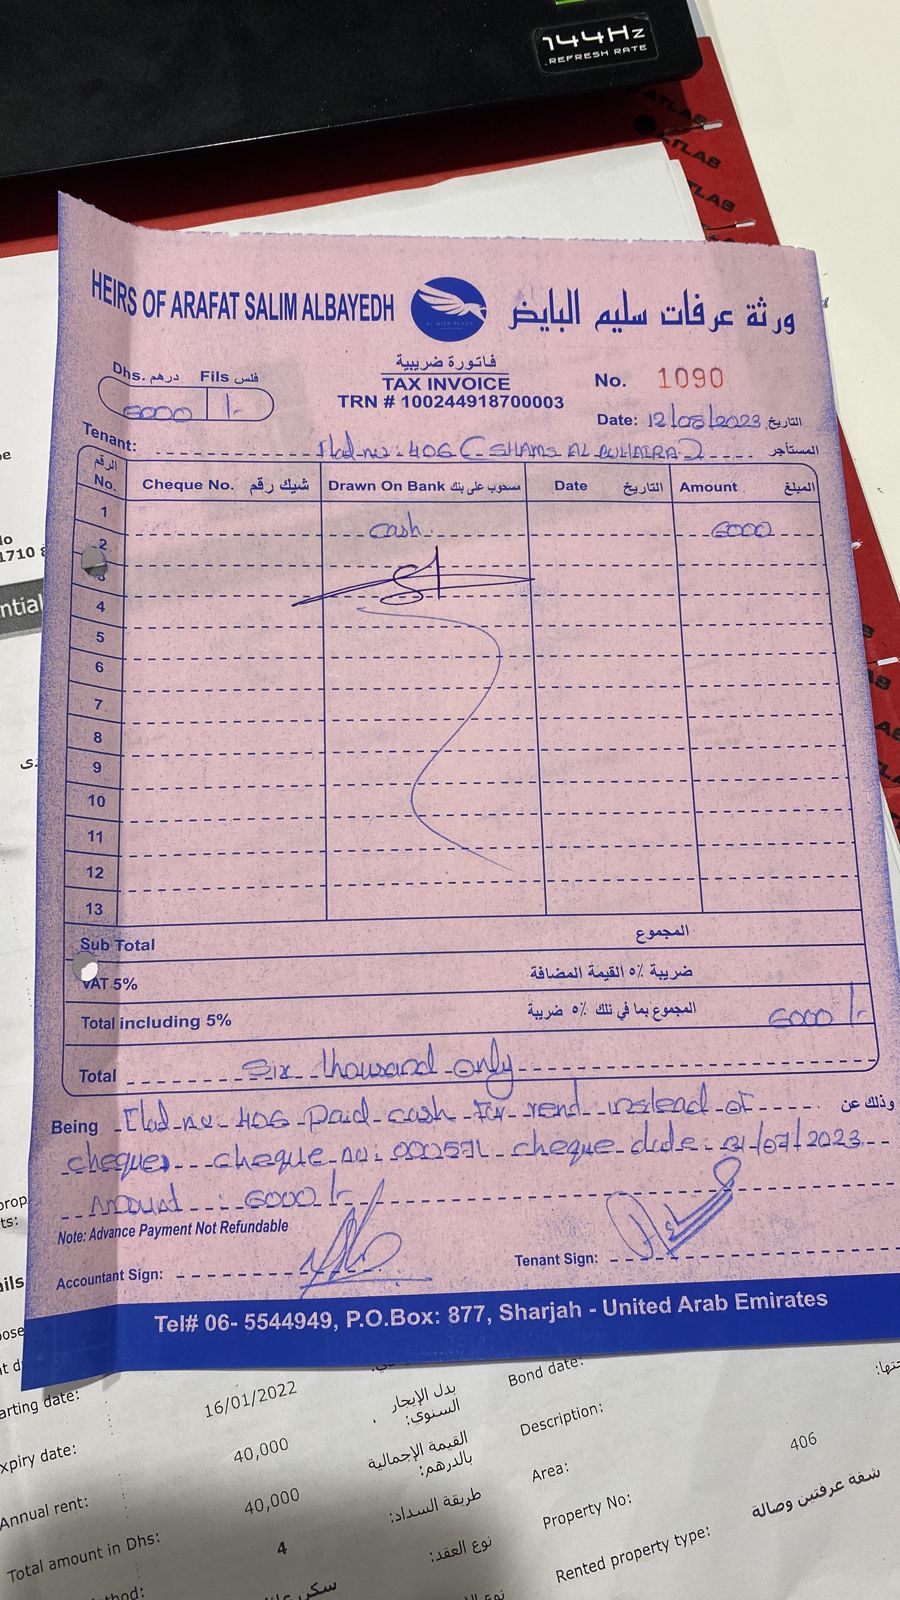 144Hz
REFRESH RATE
ATLAS
ATLAS
ATLAS
HEIRS OF ARAFAT SALIM ALBAYEDH
ورثة عرفات سليم البايض
فاتورة ضريبية
TAX INVOICE
TRN # 100244918700003
Dhs. درهم Fils فلس
6000 /-
No. 1090
Date: 12/08/2023 التاريخ
Tenant: Flat no: 406 ( SHAMS AL BUHAIRA ) المستأجر
الرقم No. Cheque No. شيك رقم Drawn On Bank مسحوب على بنك Date التاريخ Amount المبلغ
1 cash 6000
2
3
4
5
6
7
8
9
10
11
12
13
Sub Total المجموع
VAT 5% ضريبة ٥٪ القيمة المضافة
Total including 5% المجموع بما في ذلك ٥٪ ضريبة 6000 /-
Total Six thousand only
Being Flat no 406 paid cash for rend instead of وذلك عن
cheque cheque no: 000571 cheque date: 21/07/2023
Amount : 6000 /-
Note: Advance Payment Not Refundable
Accountant Sign: Tenant Sign:
Tel# 06- 5544949, P.O.Box: 877, Sharjah - United Arab Emirates
arting date: 16/01/2022 بدل الإيجار السنوي: Bond date:
xpiry date: 40,000 القيمة الإجمالية بالدرهم: Description:
Annual rent: 40,000 طريقة السداد: Area: 406
Total amount in Dhs: 4 نوع العقد: Property No: شقة غرفتين وصالة
thod: سكن Rented property type: